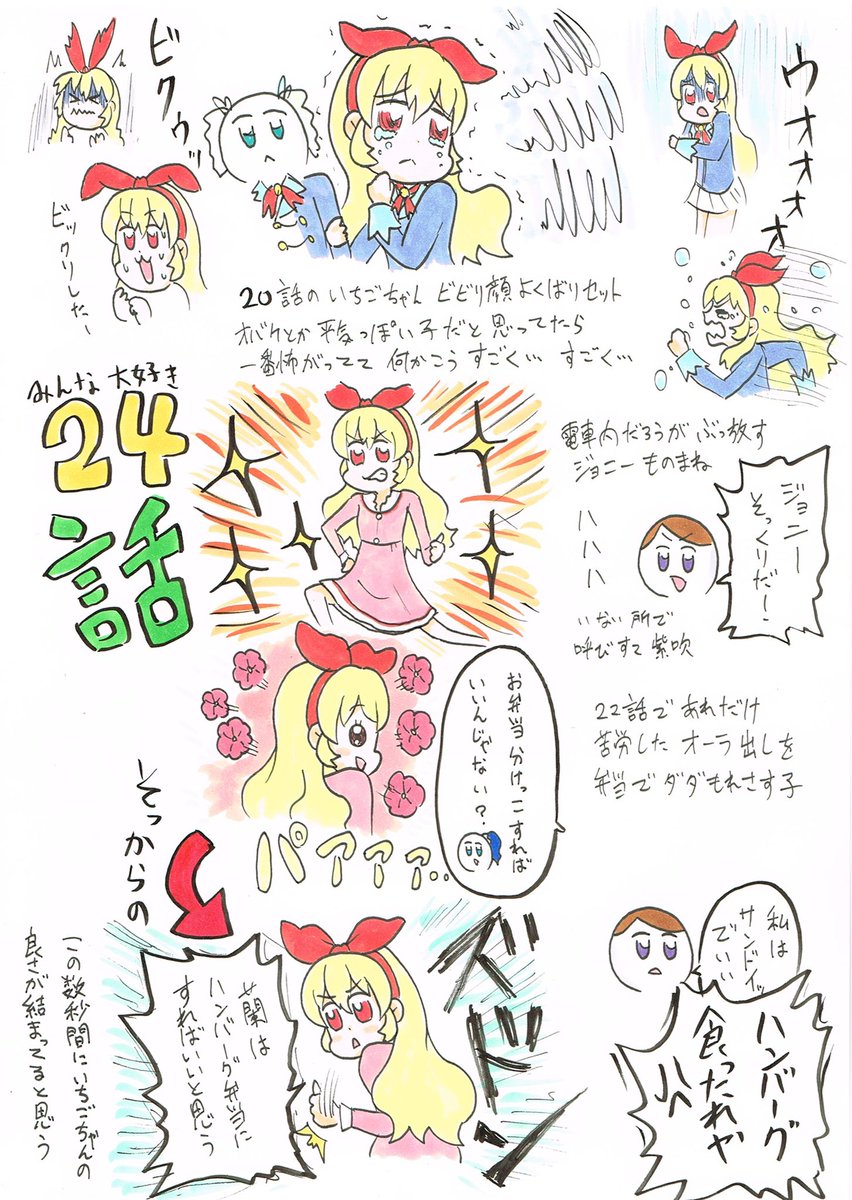 ビクゥッ
ビックリしたー
ウオォォォ
20話の いちごちゃん ビビり顔 よくばりセット
オバケとか 平気っぽい 子だと 思ってたら
一番怖がってて 何かこう すごく… すごく…
みんな 大好き
24
話
電車内だろうが ぶっ放す
ジョニー ものまね
ジョニー
そっくりだ!
ハハハ
いない所で
呼びすて 紫吹
お弁当 分けっこすれば
いいんじゃない?
22話で あれだけ
苦労した オーラ出しを
弁当で ダダもれさす子
パアァァァ..
そっからの
ズドドン
蘭は
ハンバーグ弁当に
すればいいと思う
この数秒間に いちごちゃんの
良さが結まってると思う
私は
サンドイッ
でいい
ハンバーグ
食ったれや